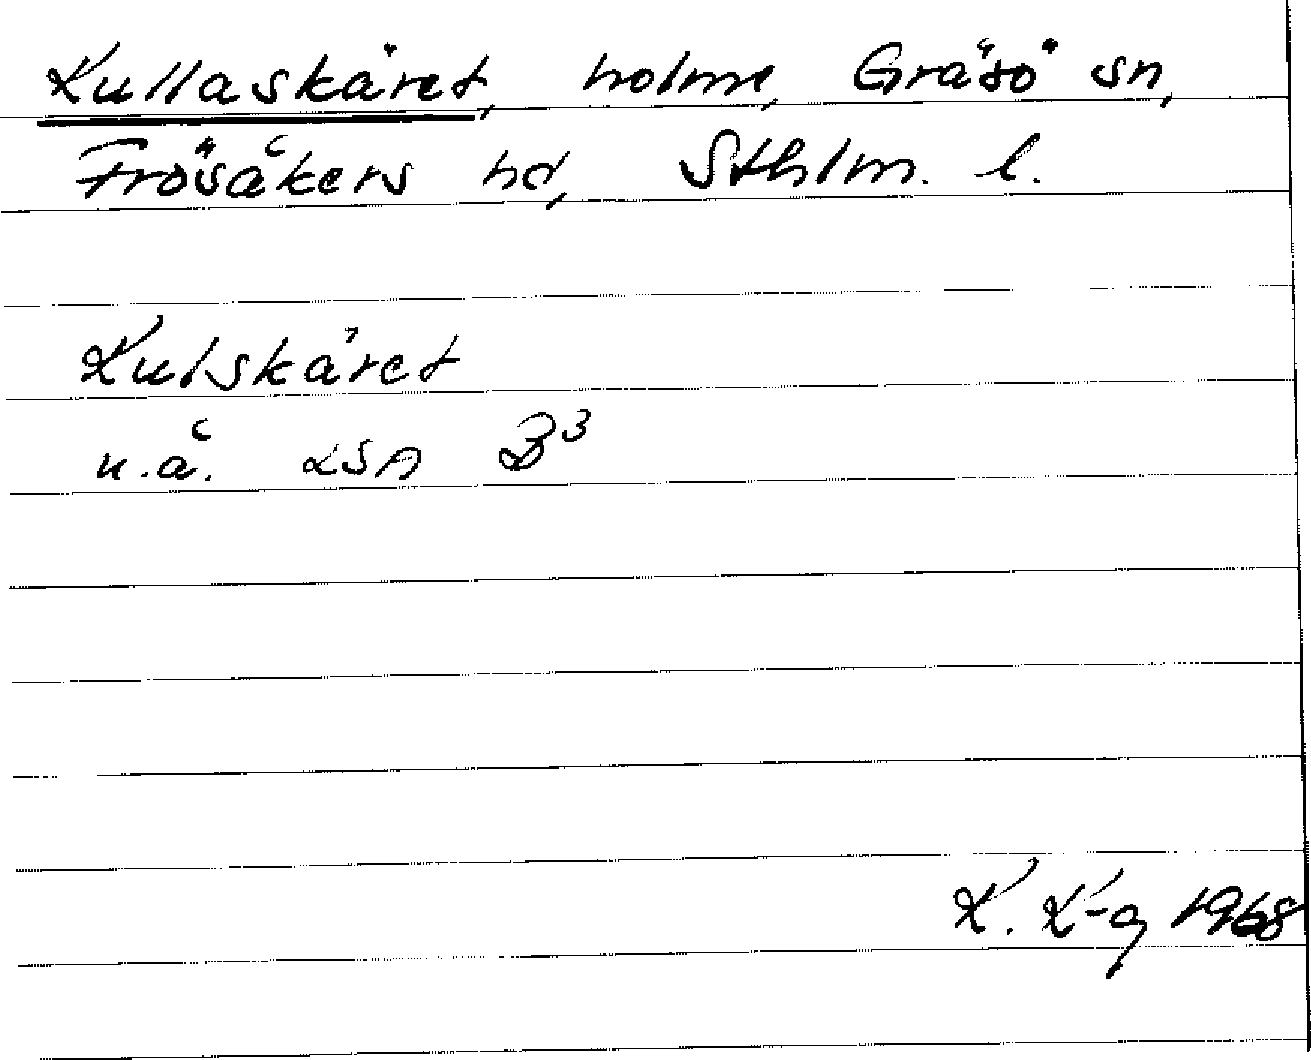 Kullaskäret, holme, Gräsö sn,
Frösåkers hd, Sthlm. l.
Kulskäret
u.å. LSA B³
K. K-g 1968